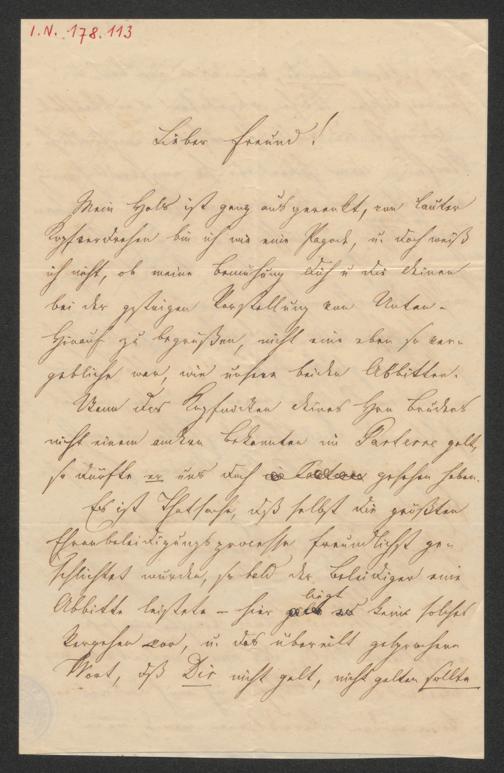 I.N. 178.113
Lieber Freund!
Mein Hals ist ganz ausgerenkt, von lauter
Kopfverdrehen bin ich wie eine Pagode, u. doch weiß
ich nicht, ob meine Bemühung Dich u die Deinen
bei der gestrigen Vorstellung von Unten-
Hinauf zu begrüßen, nicht eine eben so ver-
gebliche war, wie unsere beiden Abbitten.
Wenn das Kopfnicken Deines Hrn Bruders
nicht einem andern Bekannten im Parterre galt,
so dürfte er uns doch gesehen haben.
Es ist Thatsache, dß selbst die größten
Ehrenbeleidigungsprocesse freundlichst ge-
schlichtet wurden, so bald der Beleidiger eine
Abbitte leistete – hier liegt kein solches
Vergehen vor, u. das übereilt gesprochene
Wort, dß Dir nicht galt, nicht gelten sollte